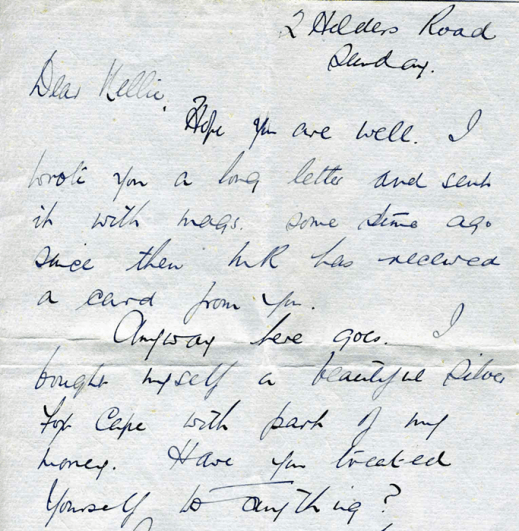 2 Helders Road
Sunday.
Dear Nellie,
Hope you are well. I
wrote you a long letter and sent
it with mags. some time ago
since then MR has received
a card from you.
Anyway here goes. I
bought myself a beautiful silver
fox Cape with part of my
money. Have you treated
Yourself to anything?